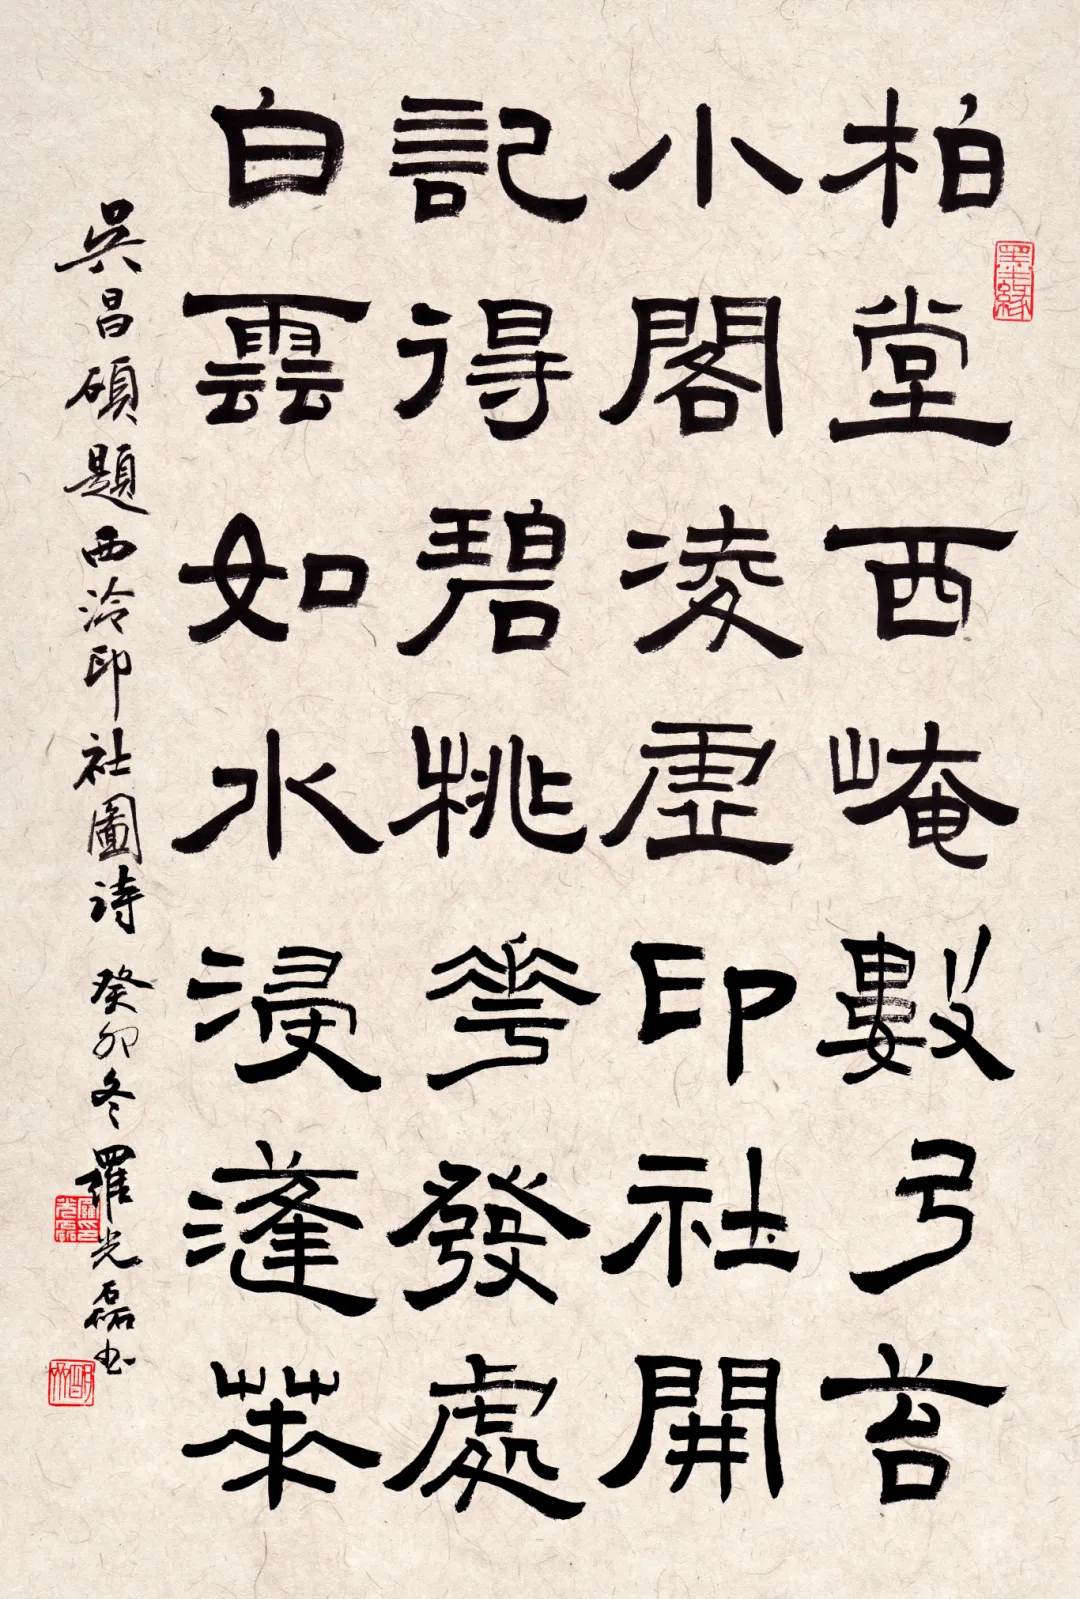 墨緣
柏堂西崦數弓苔
小閣凌虛印社開
記得碧桃華發處
白雲如水浸漨萊
吳昌碩題西泠印社圖詩 癸卯冬羅光磊书